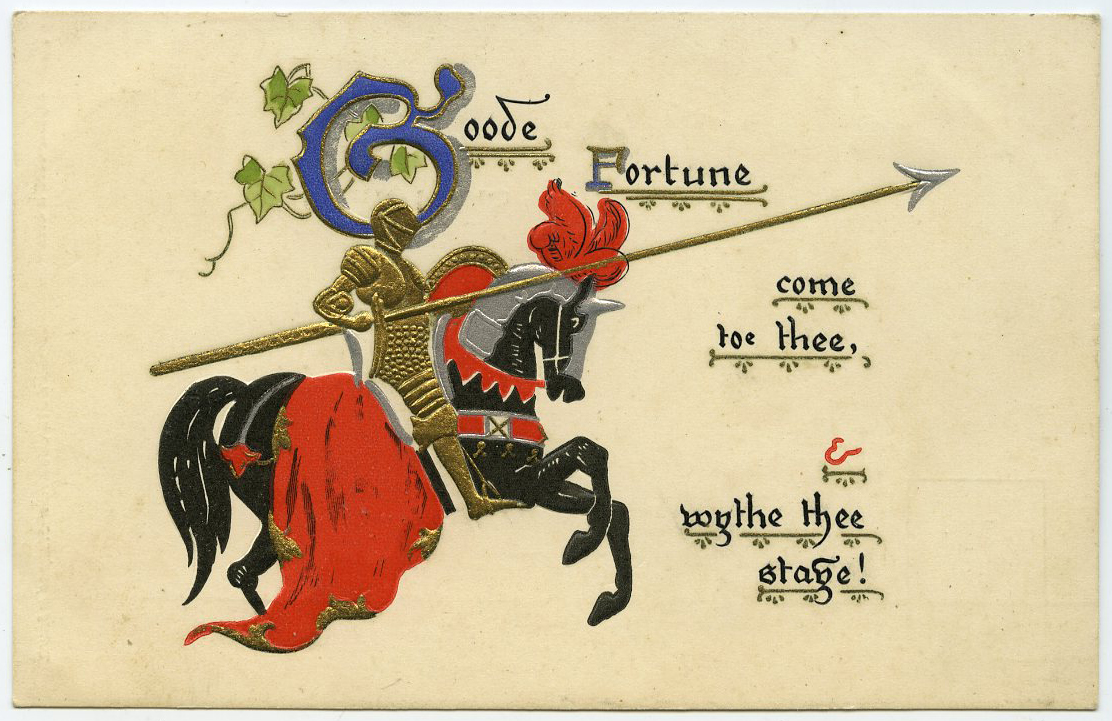 Goode
Fortune
come
toe thee,
&
wythe thee
staye!